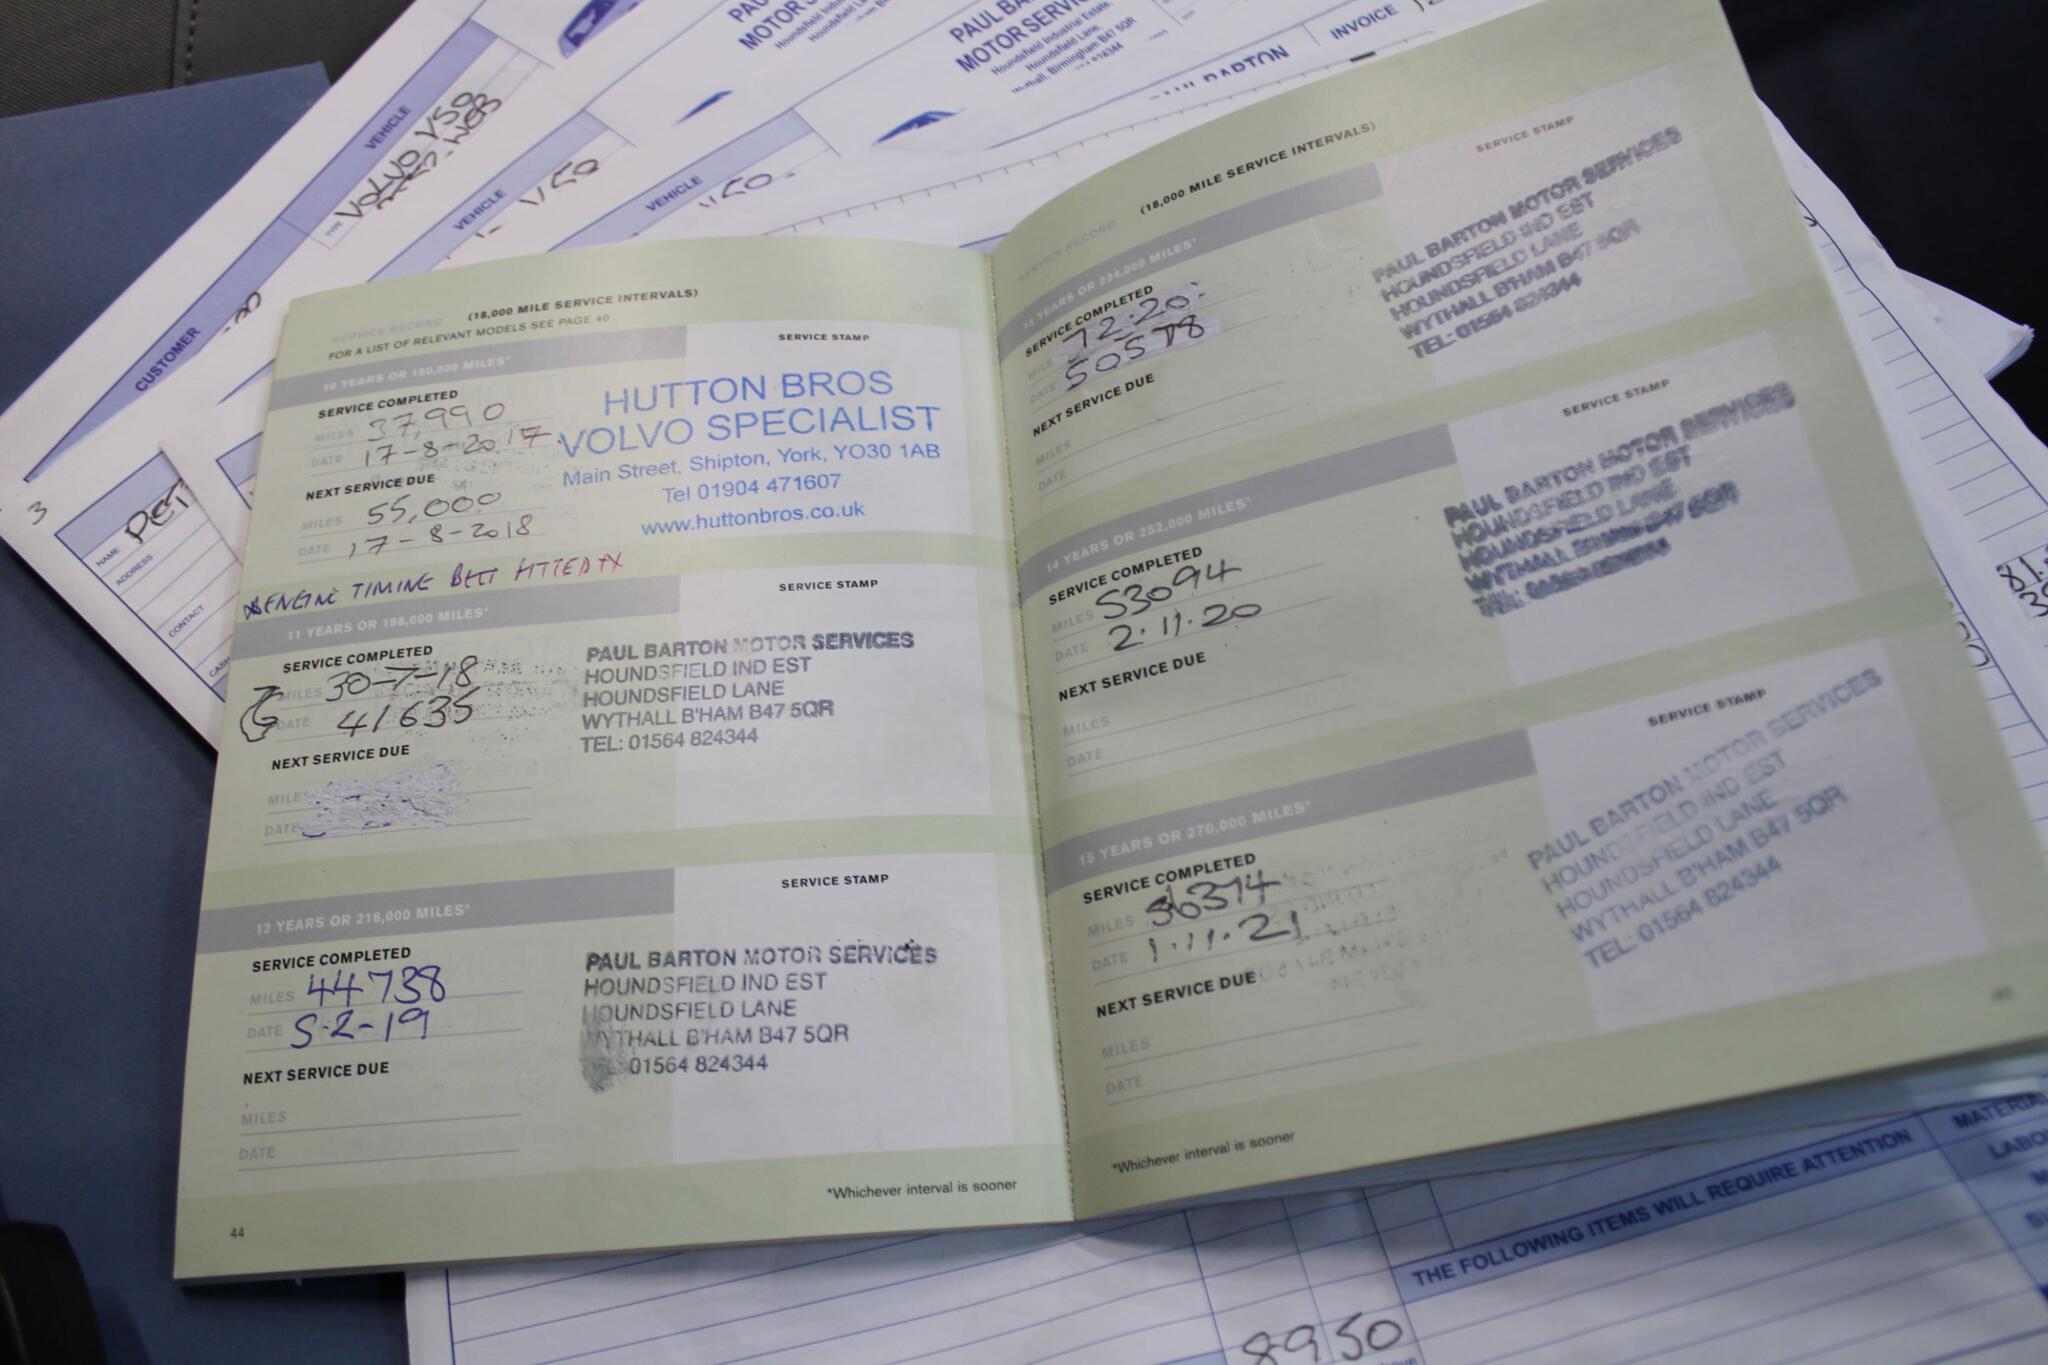 PAUL BA
MOTOR SERVI
Houndsfield Industrial
PAUL BA
MOTOR SERVIC
Houndsfield Industrial Estate,
Houndsfield Lane,
Wythall, Birmingham B47 5QR
INVOICE
VEHICLE
TYPE VOLVO V50
VEHICLE
V50
VEHICLE
V50
CUSTOMER
3
NAME
ADDRESS
CONTACT
CASH
SERVICE RECORD (18,000 MILE SERVICE INTERVALS)
FOR A LIST OF RELEVANT MODELS SEE PAGE 40
10 YEARS OR 180,000 MILES*
SERVICE COMPLETED
MILES 37,990
DATE 17-8-2017
NEXT SERVICE DUE
MILES 55,000
DATE 17-8-2018
SERVICE STAMP
HUTTON BROS
VOLVO SPECIALIST
Main Street, Shipton, York, YO30 1AB
Tel 01904 471607
www.huttonbros.co.uk
ENGINE TIMING BELT FITTED
11 YEARS OR 198,000 MILES*
SERVICE COMPLETED
MILES 30-7-18
DATE 41635
NEXT SERVICE DUE
MILES
DATE
SERVICE STAMP
PAUL BARTON MOTOR SERVICES
HOUNDSFIELD IND EST
HOUNDSFIELD LANE
WYTHALL B'HAM B47 5QR
TEL: 01564 824344
12 YEARS OR 216,000 MILES*
SERVICE COMPLETED
MILES 44738
DATE 5-2-19
NEXT SERVICE DUE
MILES
DATE
SERVICE STAMP
PAUL BARTON MOTOR SERVICES
HOUNDSFIELD IND EST
HOUNDSFIELD LANE
WYTHALL B'HAM B47 5QR
01564 824344
*Whichever interval is sooner
44
SERVICE RECORD (18,000 MILE SERVICE INTERVALS)
13 YEARS OR 234,000 MILES*
SERVICE COMPLETED
MILES
DATE
NEXT SERVICE DUE
MILES
DATE
SERVICE STAMP
PAUL BARTON MOTOR SERVICES
HOUNDSFIELD IND EST
HOUNDSFIELD LANE
WYTHALL B'HAM B47 5QR
TEL: 01564 824344
14 YEARS OR 252,000 MILES*
SERVICE COMPLETED
MILES 53094
DATE 2.11.20
NEXT SERVICE DUE
MILES
DATE
SERVICE STAMP
PAUL BARTON MOTOR SERVICES
HOUNDSFIELD IND EST
HOUNDSFIELD LANE
WYTHALL B'HAM B47 5QR
15 YEARS OR 270,000 MILES*
SERVICE COMPLETED
MILES 56374
DATE 1.11.21
NEXT SERVICE DUE
MILES
DATE
SERVICE STAMP
PAUL BARTON MOTOR SERVICES
HOUNDSFIELD IND EST
HOUNDSFIELD LANE
WYTHALL B'HAM B47 5QR
TEL: 01564 824344
*Whichever interval is sooner
THE FOLLOWING ITEMS WILL REQUIRE ATTENTION
8950